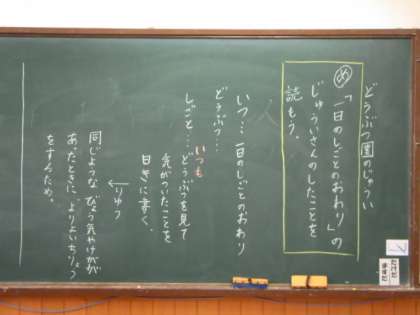 どうぶつ園のじゅうい
め「一日のしごとのおわり」の
じゅういさんのしたことを
読もう。
いつ…一日のしごとのおわり
どうぶつ…
しごと…どうぶつを見て
いつも
気がついたことを
日きに書く。
りゆう
同じようなびょう気やけがが
あったときに、よりよいちりょう
をするため。